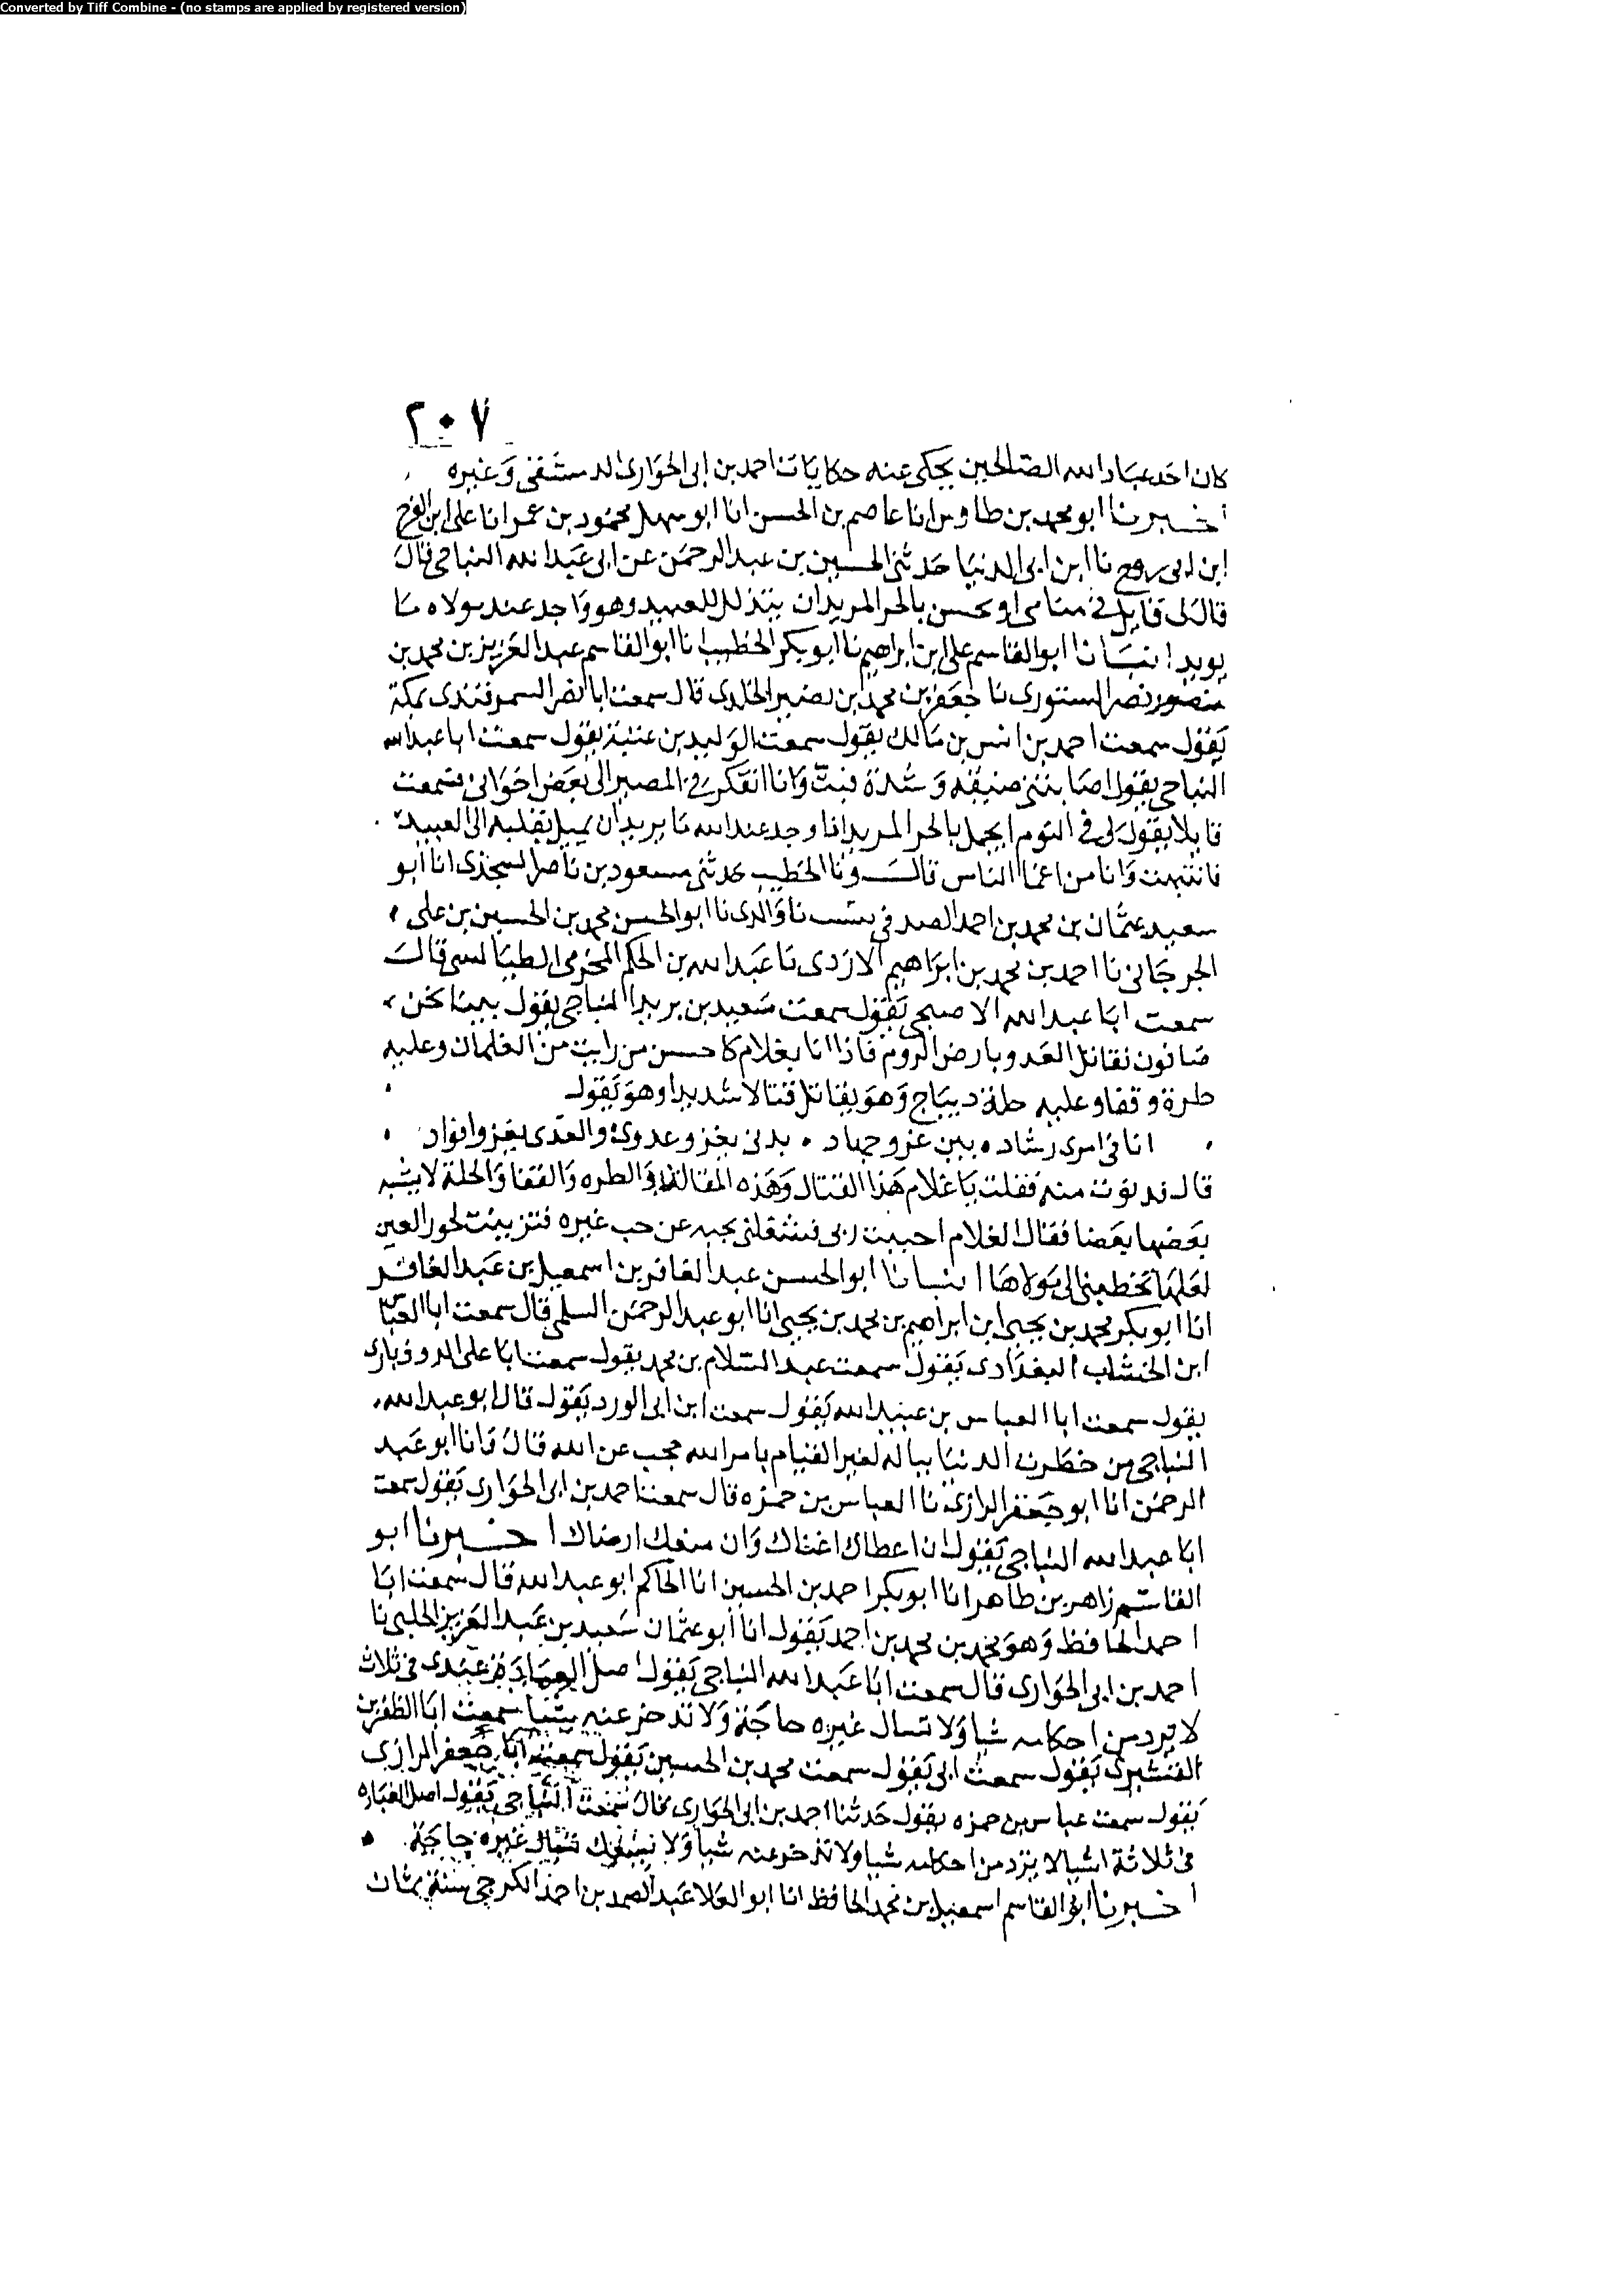 Converted by Tiff Combine - (no stamps are applied by registered version)
٢٠٧
كان احد عباد الله الصالحين يحكى عنه حكايات احمد بن ابى الحوارى الدمشقى وغيره
اخبرنا ابو محمد بن طاوس انا عاصم بن الحسن انا ابو سهل محمود بن عمر انا على ابن الفرج
ابن ابى روح نا ابن ابى الدنيا حدثنى الحسين بن عبد الرحمن عن ابى عبد الله النباجى قال
قال لى قايل فى منامى او يحسن بالحر المريد ان يتذلل للعبيد وهو واجد عند مولاه ما
يريد انبانا ابو القاسم على ابن ابراهيم نا ابو بكر الخطيب انا ابو القاسم عبد العزيز بن محمد بن
نصر الستورى نا جعفر بن محمد بن نصير الخلدى قال سمعت ابا النضر السمرقندى بمكة
يقول سمعت احمد بن انس بن مالك يقول سمعت الوليد بن عتبة يقول سمعت ابا عبد الله
النباجى يقول اصابتنى ضيقة وشدة فبت وانا اتفكر فى المصير الى بعض اخوانى فسمعت
قايلا يقول لى فى النوم ايجمل بالحر المريد اذا وجد عند الله ما يريد ان يميل بقلبه الى العبيد
فانتبهت وانا من اغنا الناس قال ونا الخطيب حدثنى مسعود بن ناصر السجزى انا ابو
سعيد عثمان بن محمد بن احمد نا والدى نا ابو الحسن محمد بن الحسين بن على
الجرجانى نا احمد بن محمد بن ابراهيم الازدى نا عبد الله بن الحكم المخرمى الطيالسى قال
سمعت ابا عبد الله الاصبحى يقول سمعت سعيد بن بريد النباجى يقول بينا نحن
صافون نقاتل العدو بارض الروم فاذا انا بغلام كاحسن من رايت من الغلمان وعليه
طرة وقفا وعليه حلة ديباج وهو يقاتل قتالا شديدا وهو يقول
انا فى امرى رشاد بين غزو وجهاد بدنى يغزو عدوى والهوى يغزو افواد
قال فدنوت منه فقلت يا غلام هذا القتال وهذه المقالة والطره والقفا والحلة لا يشبه
بعضها بعضا فقال الغلام احببت ربى فشغلنى بحبه عن حب غيره فتزينت لحور العين
لعلها تخطبنى الى مولاها انبانا ابو الحسن عبد الغافر بن اسمعيل بن عبد الغافر
انا ابو بكر محمد بن يحيى ابن ابراهيم بن محمد بن يحيى انا ابو عبد الرحمن السلمى قال سمعت ابا العباس
ابن الخشاب البغدادى يقول سمعت عبد السلام بن محمد يقول سمعت ابا على الروذبارى
يقول سمعت ابا العباس بن عبيد الله يقول سمعت ابن ابى الورد يقول قال ابو عبد الله
النباجى من خطرت الدنيا بباله لغير القيام بامر الله حجب عن الله قال وانا ابو عبد
الرحمن انا ابو جعفر الرازى نا العباس بن حمزه قال سمعت احمد بن ابى الحوارى يقول سمعت
ابا عبد الله النباجى يقول ان اعطاك اغناك وان منعك ارضاك اخبرنا ابو
القاسم زاهر بن طاهر انا ابو بكر احمد بن الحسين انا الحاكم ابو عبد الله قال سمعت ابا
احمد الحافظ وهو محمد بن محمد بن احمد يقول انا ابو عثمان سعيد بن عبد العزيز الحلبى نا
احمد بن ابى الحوارى قال سمعت ابا عبد الله النباجى يقول اصل العبادة عندى فى ثلاث
لا ترد من احكامه شيا ولا تسال غيره حاجة ولا تدخر عنه شيا سمعت ابا المظفر بن
القشيرى يقول سمعت ابى يقول سمعت محمد بن الحسين يقول سمعت ابا جعفر الرازى
يقول سمعت عباس بن حمزه يقول حدثنا احمد بن ابى الحوارى قال سمعت النباجى يقول اصل العباده
فى ثلاثة اشيا لا يرد من احكامه شيا ولا تدخر عنه شيا ولا تسال غيره حاجة
اخبرنا ابو القاسم اسمعيل بن محمد الحافظ انا ابو العلا عبد الصمد بن احمد الكرجى سنة ثمان